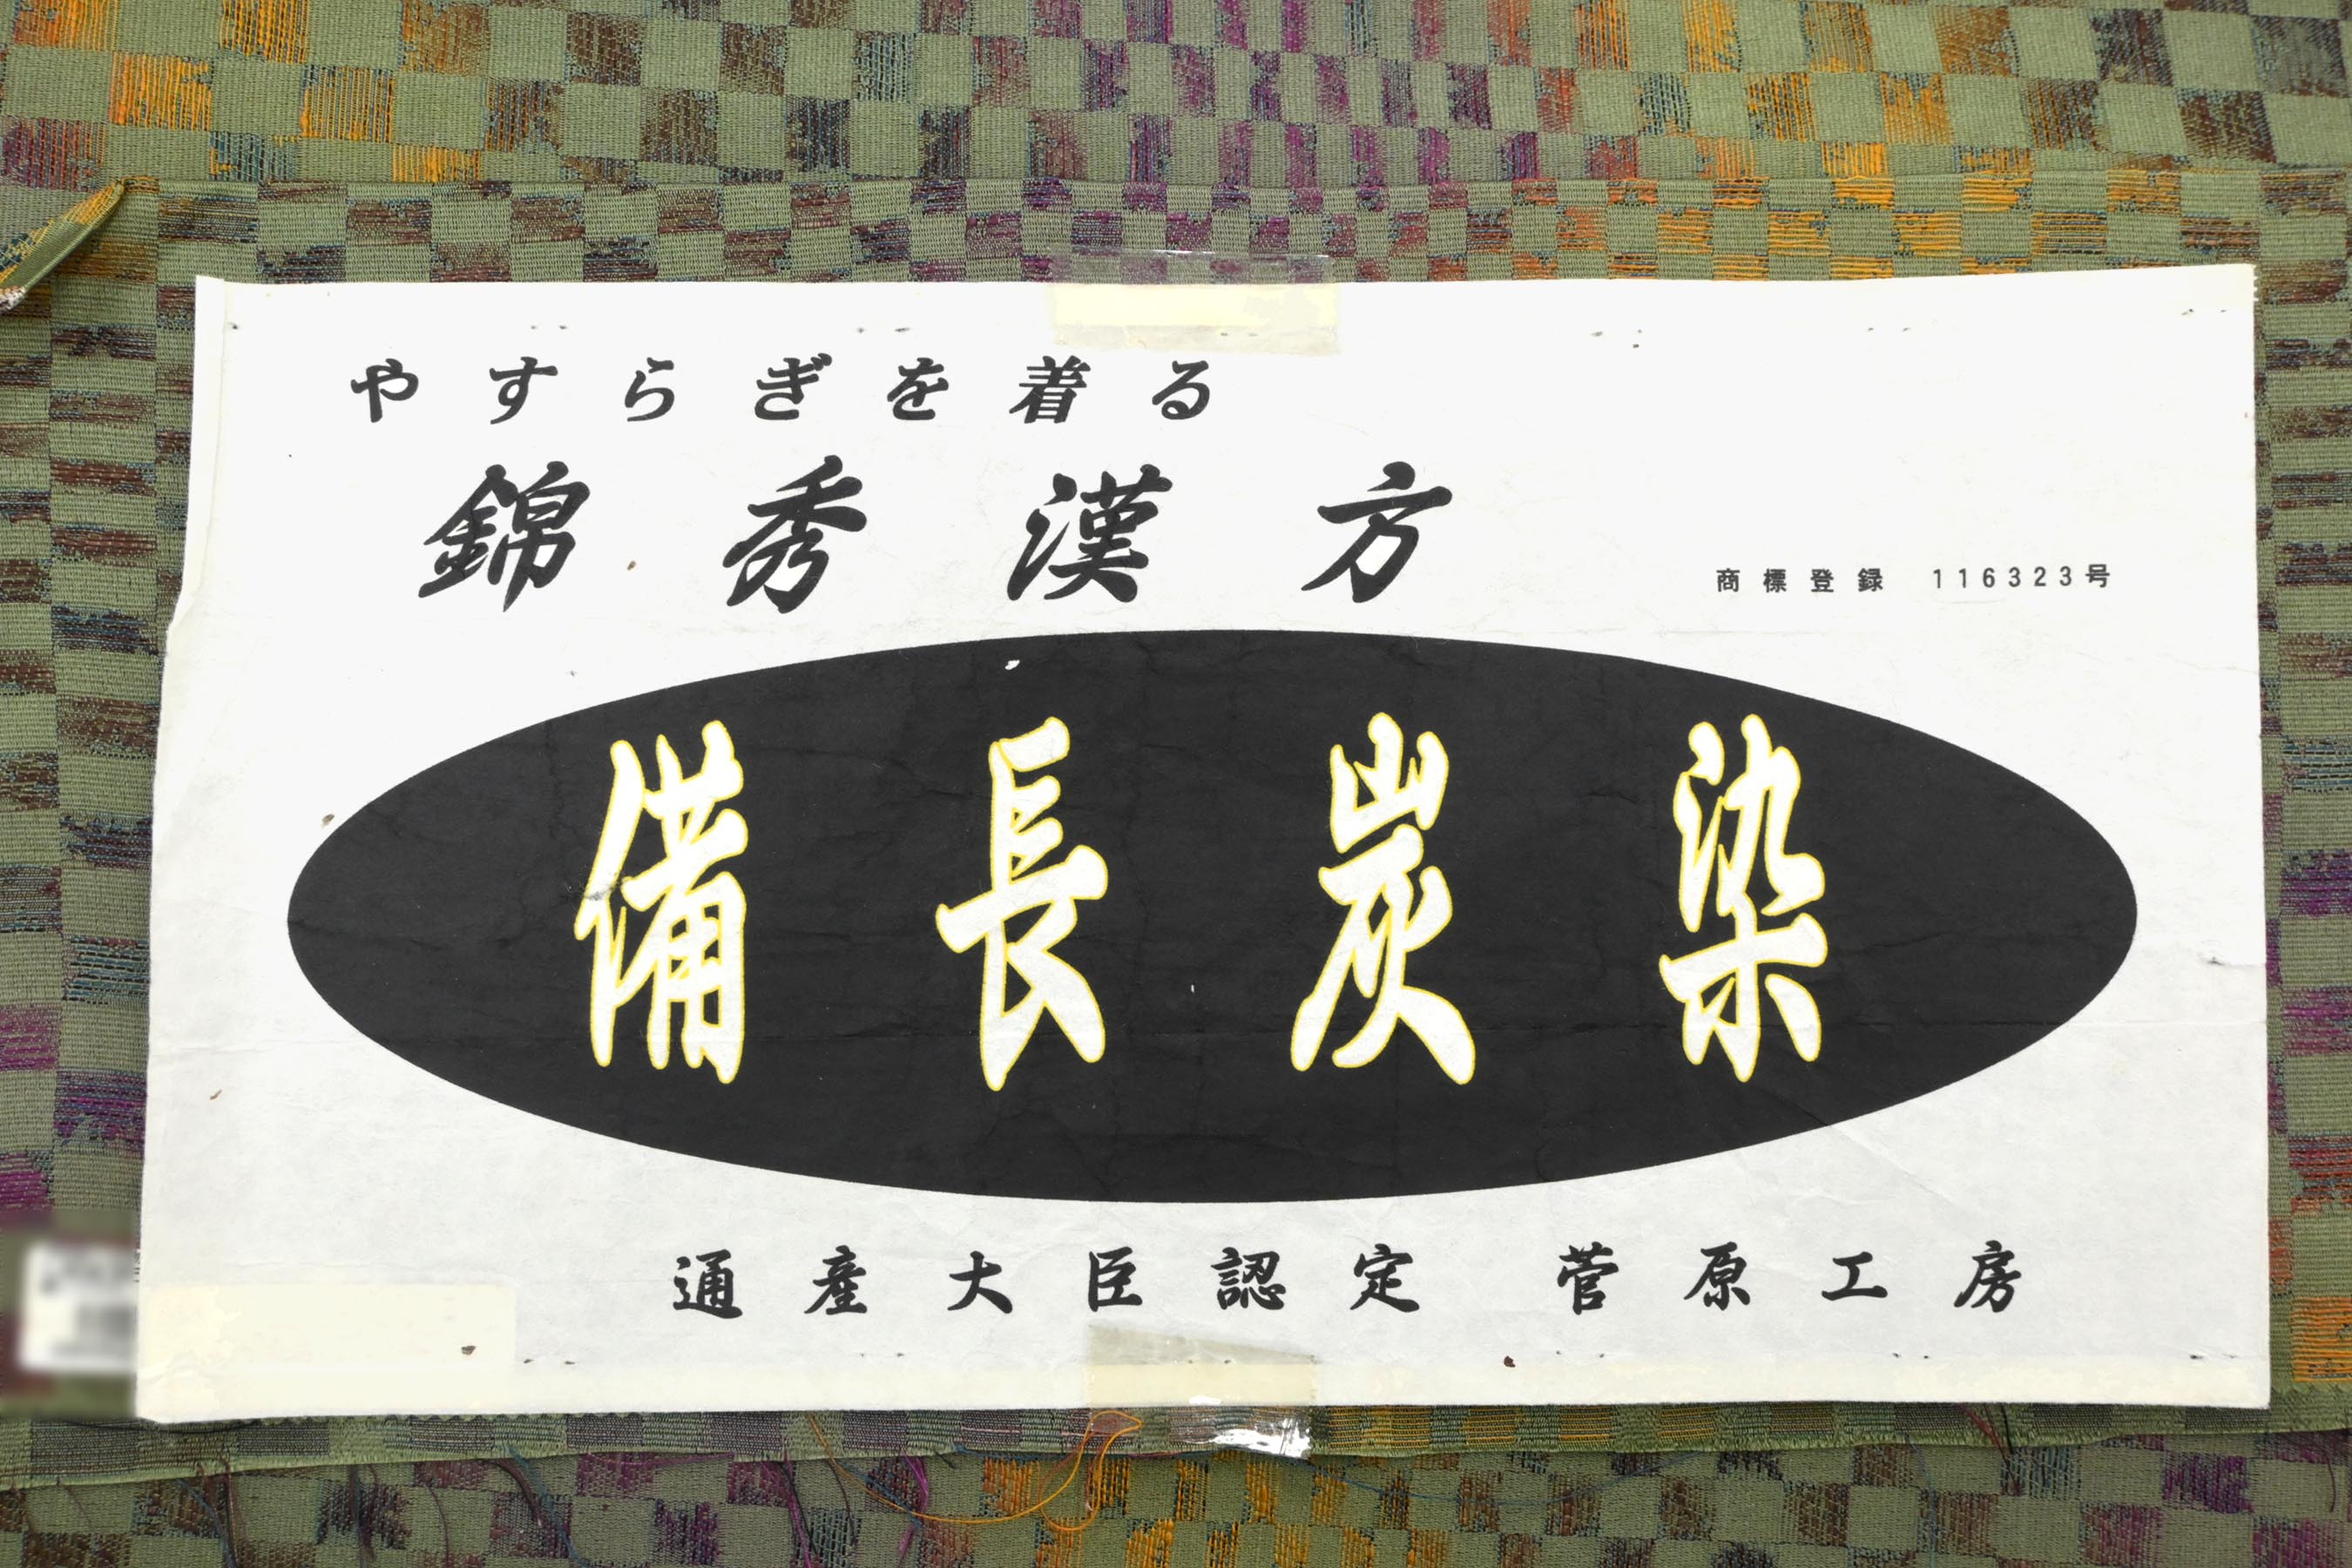 やすらぎを着る
錦秀漢方
商標登録 116323号
備長炭染
通産大臣認定 菅原工房